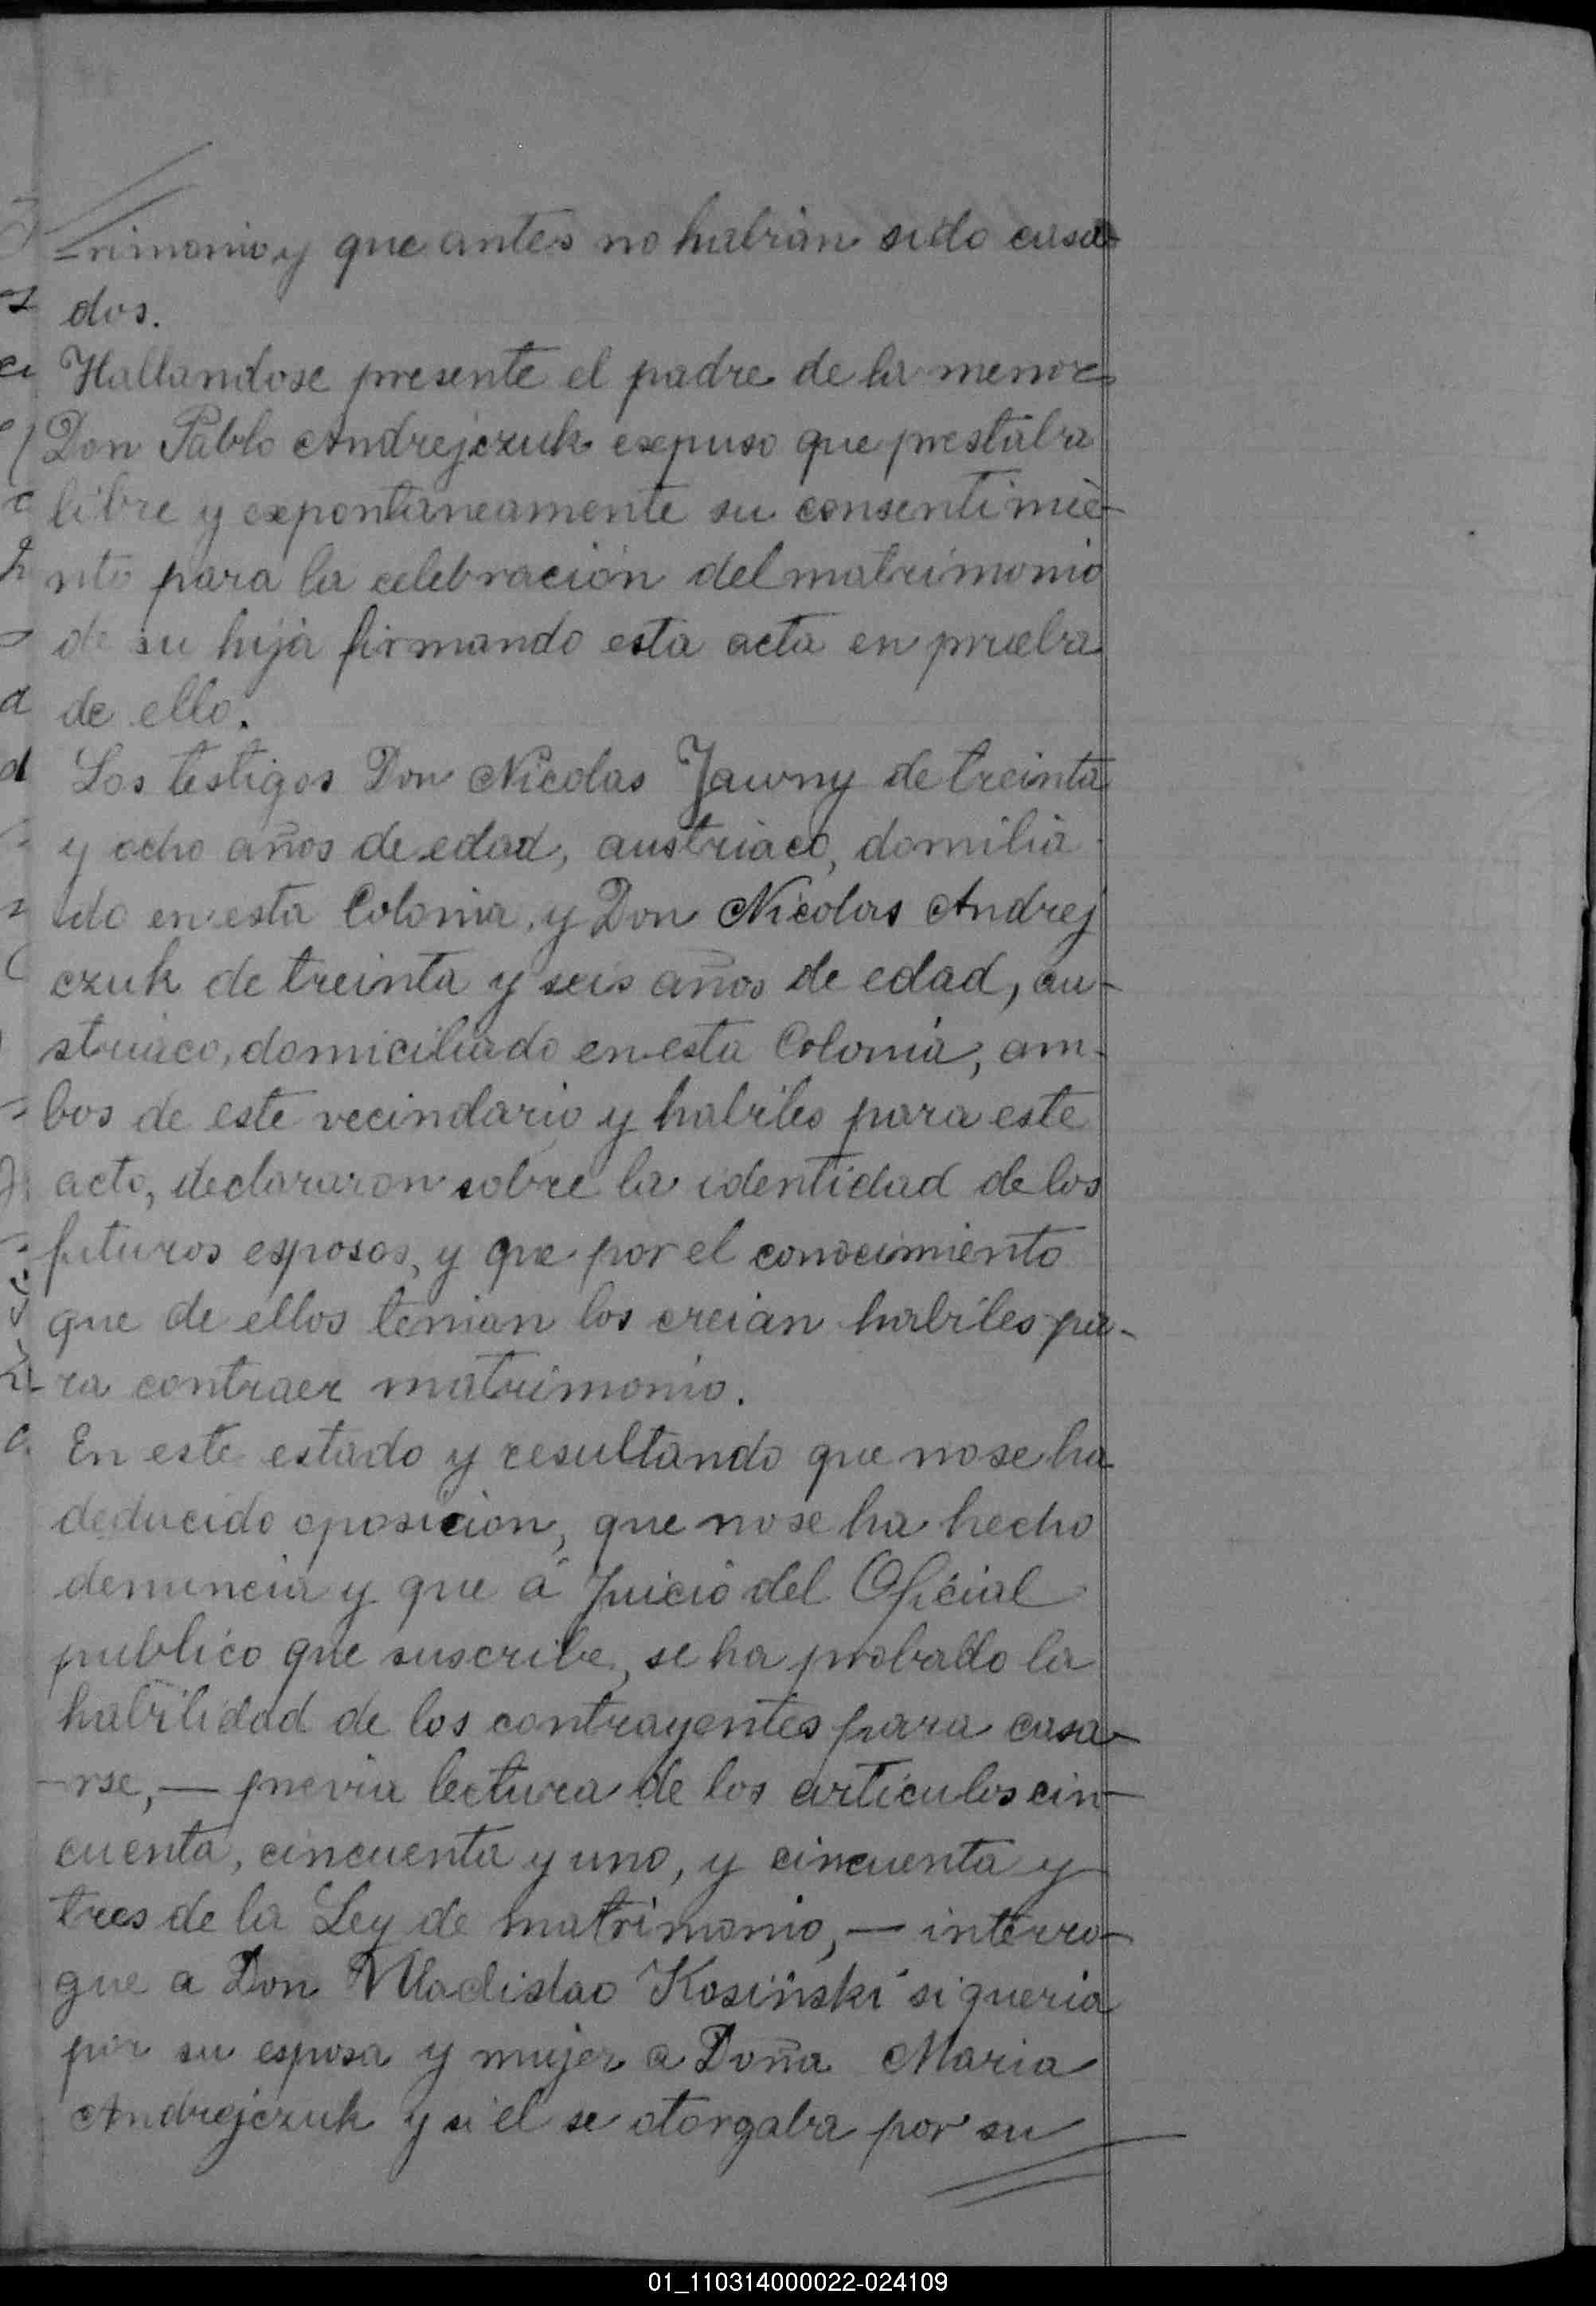 =rimonio y que antes no habian sido casa-
dos.
Hallandose presente el padre de la menor=
Don Pablo Andrejczuk expuso que prestaba
libre y expontaneamente su consentimie-
nto para la celebración del matrimonio
de su hija firmando esta acta en prueba
de ello.
Los testigos Don Nicolas Jawny de treinta
y ocho años de edad, austriaco, domilia
do en esta Colonia, y Don Nicolas Andrej
czuk de treinta y seis años de edad, au-
striaco, domiciliado en esta Colonia, am-
bos de este vecindario y habiles para este
acto, declararon sobre la identidad de los
futuros esposos, y que por el conocimiento
que de ellos tenian los creian habiles pa-
ra contraer matrimonio.
En este estado y resultando que no se ha
deducido oposicion, que no se ha hecho
denuncia y que á juicio del Oficial
publico que suscribe, se ha probado la
habilidad de los contrayentes para casa-
-rse, — previa lectura de los articulos cin-
cuenta, cincuenta y uno, y cincuenta y
tres de la Ley de matrimonio, — interro-
gue a Don Wladislao Kosiński si queria
por su esposa y mujer a Doña Maria
Andrejczuk y si el se otorgaba por su
01_110314000022-024109